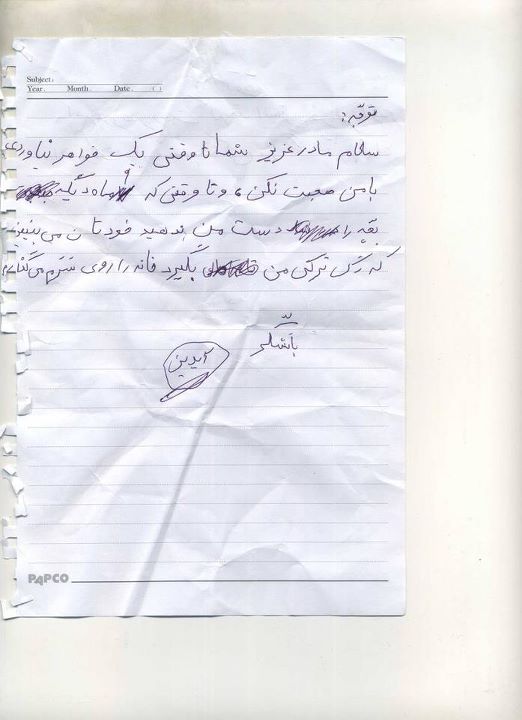 Subject:
Year. Month. Date. ( )
توجّه:
سلام مادر عزیز شما تا وقتی یک خواهر نیاوری
با من صحبت نکن، و تا وقتی که ماه دیگه
بچه را دست من بدهید خودتان می بینید
که رگ ترکی من بگیرد خانه را روی سَرَم می گذارم
باتشکّر
آیدین
PAPCO